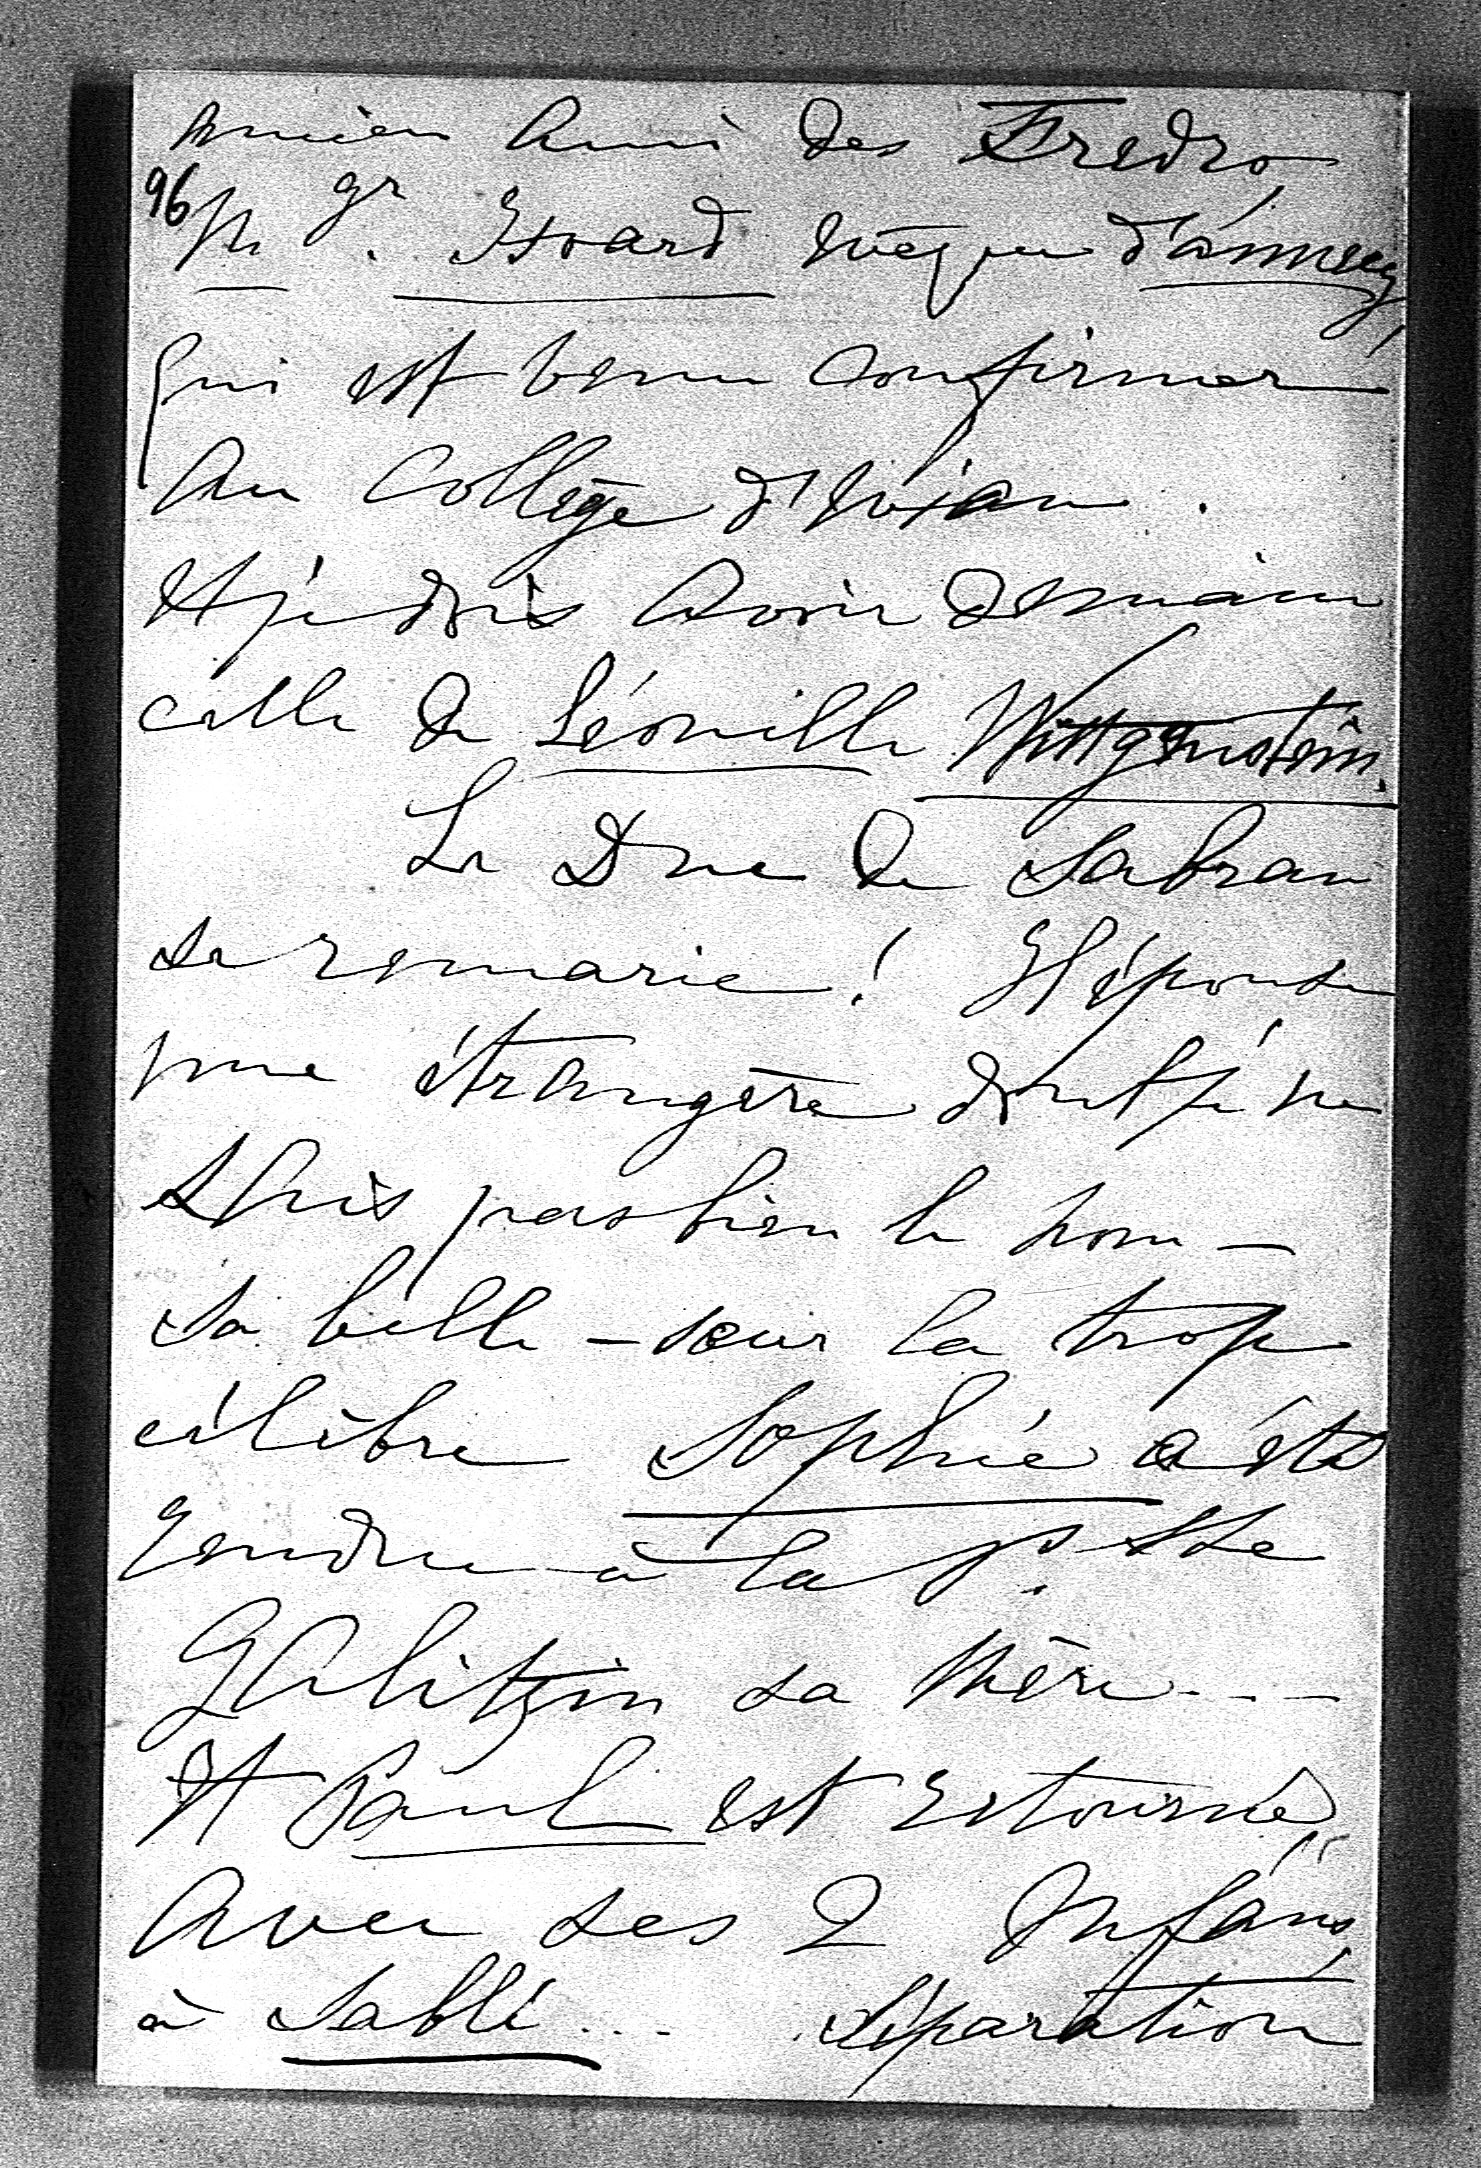 Ancien Ami des Fredro,
96 Mgr. Isoard Evêque d'Annecy,
qui est venu confirmer
au Collège d'Evian.
Et je dois avoir demain
celle de Léonille Wittgenstein.
Le Duc de Sabran
se remarie! Il épouse
une étrangère dont je ne
sais pas bien le nom —
Sa belle-sœur la trop
célèbre Sophie a été
rendue à la P.sse
Galitzin sa Mère...
Et Paul est retourné
avec ses 2 Enfans,
à Sablé... Séparation